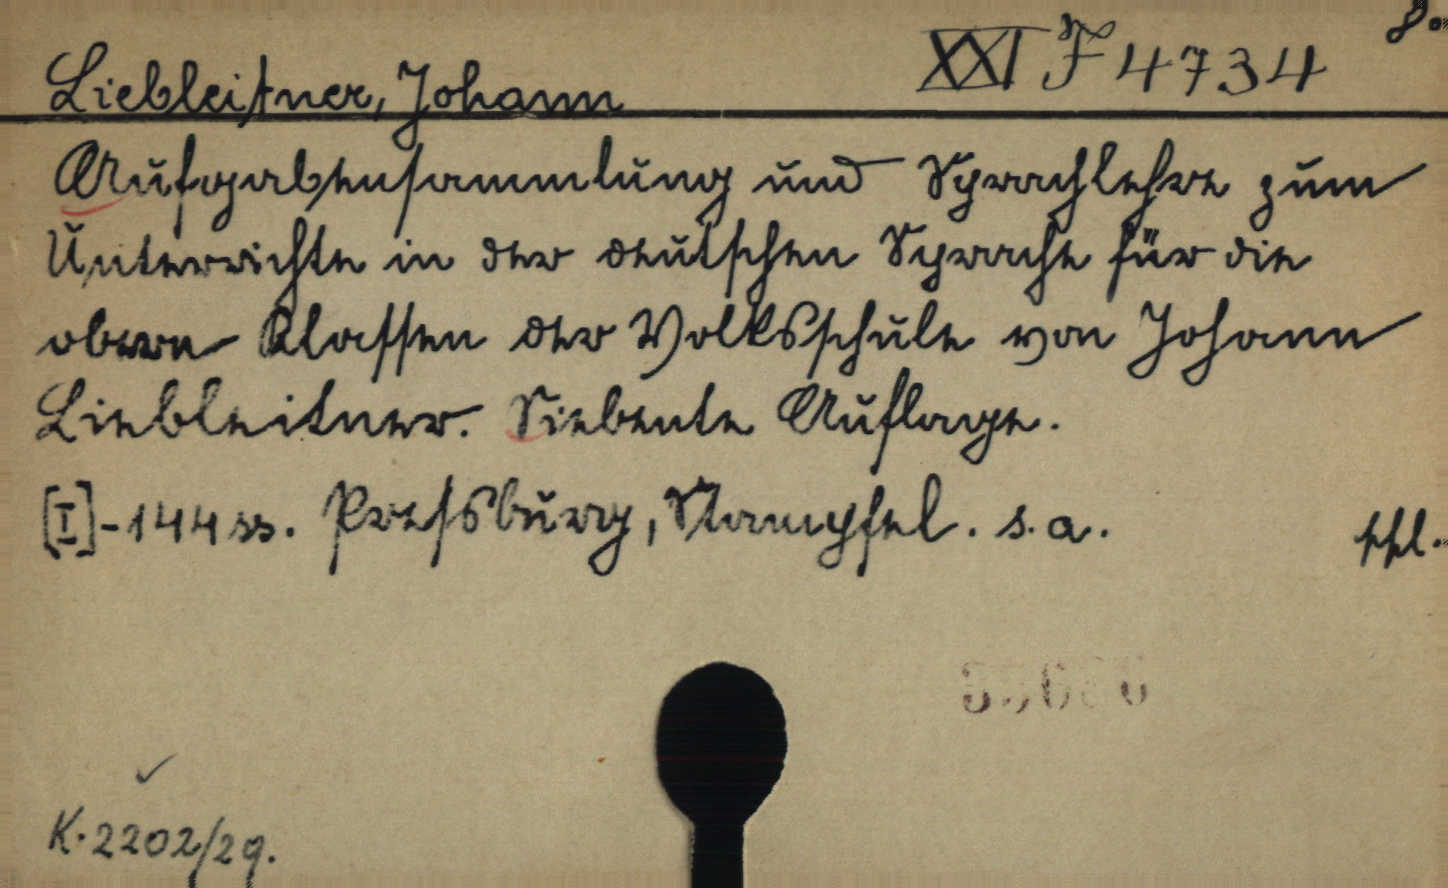 8.
XXI F 4734
Liebleitner, Johann
Aufgabensammlung und Sprachlehre zum
Unterrichte in der deutschen Sprache für die
obern Klassen der Volksschule von Johann
Liebleitner. Siebente Auflage.
[I]-144 ss. Pressburg, Stampfel. s. a.
K. 2202/29.